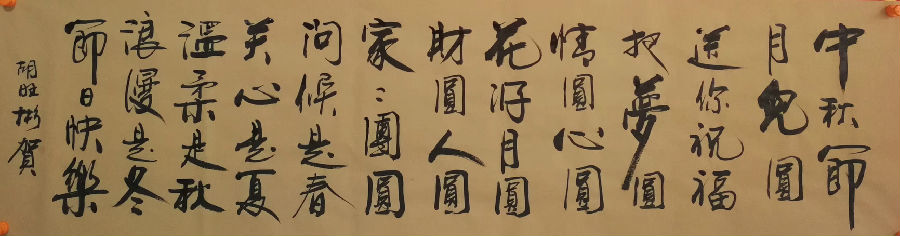 中秋節
月兒圓
送你祝福
把夢圓
情圓心圓
花好月圓
財圓人圓
家〻團圓
问候是春
关心是夏
溫柔是秋
浪漫是冬
節日快樂
胡旺彬賀